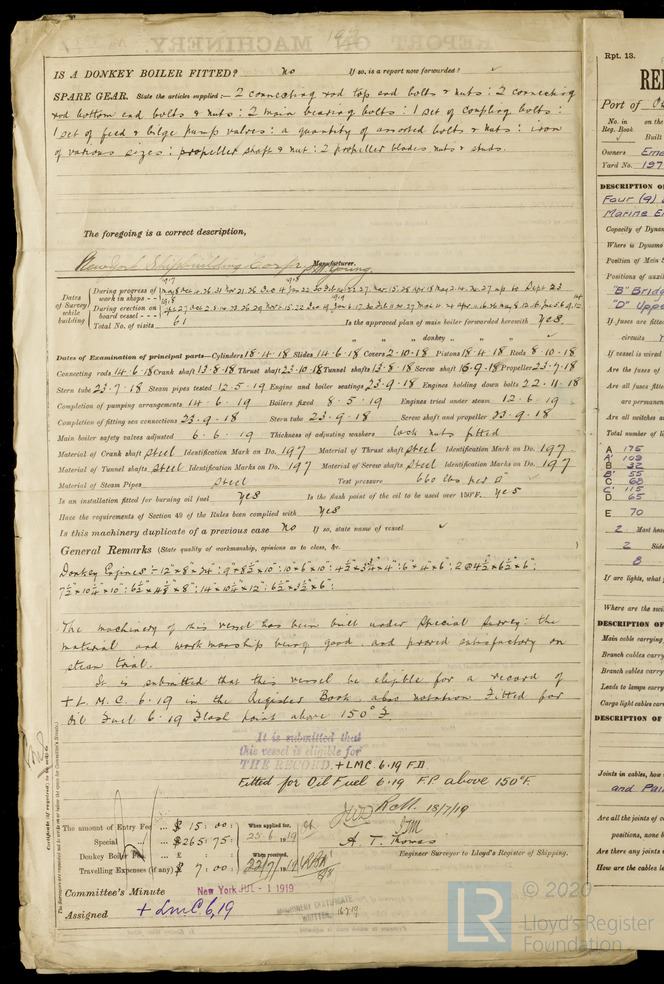 IS A DONKEY BOILER FITTED? no If so, is a report now forwarded? ✓
SPARE GEAR. State the articles supplied:— 2 connecting rod top end bolts & nuts: 2 connecting
rod bottom end bolts & nuts: 2 main bearing bolts: 1 set of coupling bolts:
1 set of feed & bilge pump valves: a quantity of assorted bolts & nuts: iron
of various sizes: propeller shaft & nut: 2 propeller blades nuts & studs.
The foregoing is a correct description,
New York Shipbuilding Corp. Manufacturer.
Dates of Survey while building
During progress of work in shops - -
During erection on board vessel - - -
Total No. of visits 61 Is the approved plan of main boiler forwarded herewith Yes
" " " donkey " " "
Dates of Examination of principal parts—Cylinders 18.4.18 Slides 14.6.18 Covers 2.10.18 Pistons 18.4.18 Rods 8.10.18
Connecting rods 14.6.18 Crank shaft 13.8.18 Thrust shaft 23.10.18 Tunnel shafts 13.8.18 Screw shaft 16.9.18 Propeller 23.7.18
Stern tube 23.7.18 Steam pipes tested 12.5.19 Engine and boiler seatings 23.9.18 Engines holding down bolts 22.11.18
Completion of pumping arrangements 14.6.19 Boilers fixed 8.5.19 Engines tried under steam 12.6.19
Completion of fitting sea connections 23.9.18 Stern tube 23.9.18 Screw shaft and propeller 23.9.18
Main boiler safety valves adjusted 6.6.19 Thickness of adjusting washers lock nuts fitted
Material of Crank shaft Steel Identification Mark on Do. 197 Material of Thrust shaft Steel Identification Mark on Do. 197
Material of Tunnel shafts Steel Identification Marks on Do. 197 Material of Screw shafts Steel Identification Marks on Do. 197
Material of Steam Pipes Steel Test pressure 660 lbs per □"
Is an installation fitted for burning oil fuel Yes Is the flash point of the oil to be used over 150°F. Yes
Have the requirements of Section 49 of the Rules been complied with Yes
Is this machinery duplicate of a previous case No If so, state name of vessel ✓
General Remarks (State quality of workmanship, opinions as to class, &c.
Donkey Engines:—
The machinery of this vessel has been built under Special Survey: the
material and workmanship being good and proved satisfactory on
steam trial.
It is submitted that this vessel be eligible for a record of
+ L.M.C. 6.19 in the Register Book also notation Fitted for
Oil Fuel 6.19 Flash point above 150°F
It is submitted that
this vessel is eligible for
THE RECORD. + LMC 6.19 F.D.
Fitted for Oil Fuel 6.19 F.P. above 150°F.
18/7/19
The amount of Entry Fee ... $ 15 : 00 : When applied for,
Special ... $ 265 : 75 : 25.6.1919
Donkey Boiler Fee ... £ : : When received, A. T. Thomas
Travelling Expenses (if any) $ 7 : 00 : 22/7/1919 Engineer Surveyor to Lloyd's Register of Shipping.
Committee's Minute New York JUL - 1 1919
Assigned + LMC 6,19
Certificate (if required) to be sent to
Rpt. 13.
Port of
No. in Reg. Book
on the
Built
Owners
Yard No. 197
DESCRIPTION OF
Four (4)
Marine
Capacity of Dynamo
Where is Dynamo
Position of Main
Positions of auxi
"B" Bridg
"D" Uppe
If fuses are fitted
circuits
If vessel is wired
Are the fuses of
Are all fuses fitte
are permanen
Are all switches a
Total number of li
A 175
A' 109
B 32
B' 55
C 68
C' 115
D 65
E 70
2 Mast head
2 Side
8
If arc lights, what
Where are the
DESCRIPTION OF
Main cable carrying
Branch cables carry
Branch cables carry
Leads to lamps carry
Cargo light cables car
DESCRIPTION OF
Joints in cables, how
and Pai
Are all the joints of
positions, none b
Are there any joints
How are the cables le
LR © 2020
Lloyd's Register
Foundation